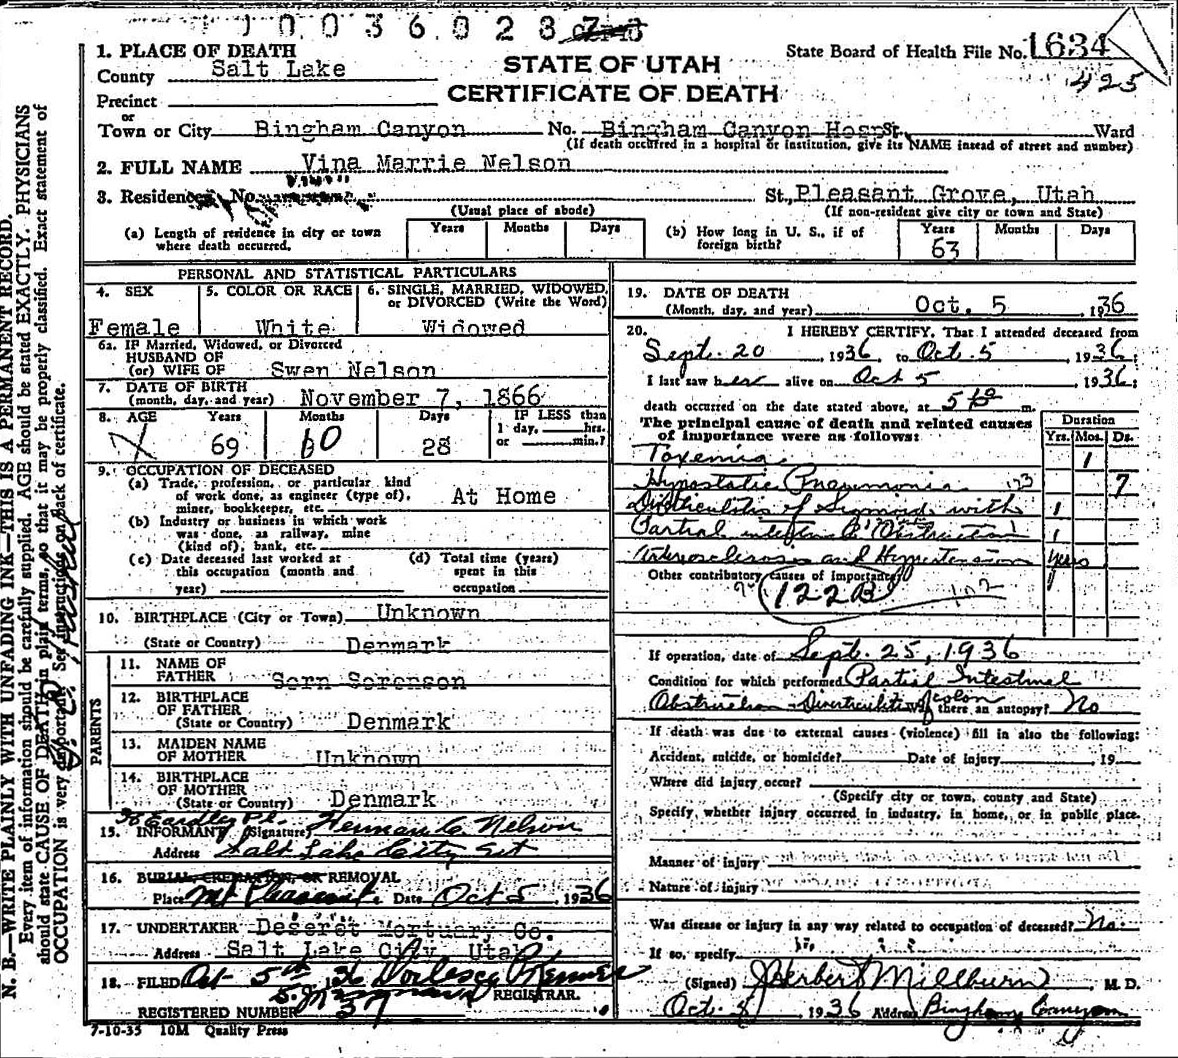 10036028
1. PLACE OF DEATH
County Salt Lake
STATE OF UTAH
CERTIFICATE OF DEATH
State Board of Health File No. 1634
425
Precinct
or
Town or City Bingham Canyon No. Bingham Canyon Hosp St. Ward
(If death occurred in a hospital or institution, give its NAME instead of street and number)
2. FULL NAME Vina Marrie Nelson
3. Residence No. St., Pleasant Grove, Utah
(Usual place of abode)
(If non-resident give city or town and State)
(a) Length of residence in city or town where death occurred.
Years Months Days
(b) How long in U. S., if of foreign birth?
Years Months Days
63
PERSONAL AND STATISTICAL PARTICULARS
4. SEX
Female
5. COLOR OR RACE
White
6. SINGLE, MARRIED, WIDOWED, or DIVORCED (Write the Word)
Widowed
6a. IF Married, Widowed, or Divorced
HUSBAND OF
(or) WIFE OF Swen Nelson
7. DATE OF BIRTH
(month, day, and year) November 7, 1866
8. AGE Years Months Days IF LESS than
1 day, hrs.
or min.?
69 28
9. OCCUPATION OF DECEASED
(a) Trade, profession, or particular kind
of work done, as engineer (type of),
miner, bookkeeper, etc. At Home
(b) Industry or business in which work
was done, as railway, mine
(kind of), bank, etc.
(c) Date deceased last worked at
this occupation (month and
year)
(d) Total time (years)
spent in this
occupation
10. BIRTHPLACE (City or Town) Unknown
(State or Country) Denmark
PARENTS
11. NAME OF
FATHER Sorn Sorenson
12. BIRTHPLACE
OF FATHER
(State or Country) Denmark
13. MAIDEN NAME
OF MOTHER Unknown
14. BIRTHPLACE
OF MOTHER
(State or Country) Denmark
15. INFORMANT (Signature) Herman C. Nelson
Address Salt Lake City Ut
16. BURIAL, CREMATION, OR REMOVAL
Place Mt Pleasant Date Oct 5, 1936
17. UNDERTAKER Deseret Mortuary Co.
Address Salt Lake City, Utah
18. FILED Oct 5th 36
REGISTRAR.
REGISTERED NUMBER 37
7-10-35 10M Quality Press
19. DATE OF DEATH
(Month, day, and year) Oct. 5, 1936
20. I HEREBY CERTIFY, That I attended deceased from
Sept. 20, 1936, to Oct. 5, 1936;
I last saw her alive on Oct 5, 1936;
death occurred on the date stated above, at m.
The principal cause of death and related causes
of importance were as follows:
Duration
Yrs. Mos. Ds.
Toxemia 1
Hypostatic Pneumonia 7
Diverticulitis of Sigmoid with 1
Partial intestinal Obstruction 1
Arteriosclerosis and Hypertension years
Other contributory causes of importance
122B
If operation, date of Sept. 25, 1936
Condition for which performed Partial Intestinal
Obstruction - Diverticulitis of colon Was there an autopsy? No
If death was due to external causes (violence) fill in also the following:
Accident, suicide, or homicide? Date of injury , 19
Where did injury occur?
(Specify city or town, county and State)
Specify, whether injury occurred in industry, in home, or in public place.
Manner of injury
Nature of injury
Was disease or injury in any way related to occupation of deceased? No.
If so, specify
(Signed) J Herbert Millburn, M. D.
Oct. 1936 Address Bingham Canyon
N. B.—WRITE PLAINLY WITH UNFADING INK—THIS IS A PERMANENT RECORD.
Every item of information should be carefully supplied. AGE should be stated EXACTLY. PHYSICIANS
should state CAUSE OF DEATH in plain terms, so that it may be properly classified. Exact statement of
OCCUPATION is very important. See instructions on back of certificate.